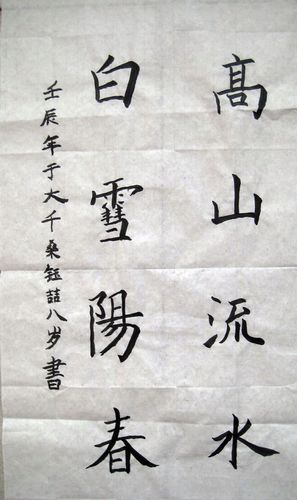 高山流水
白雪陽春
壬辰年于大千桑钰喆八岁書